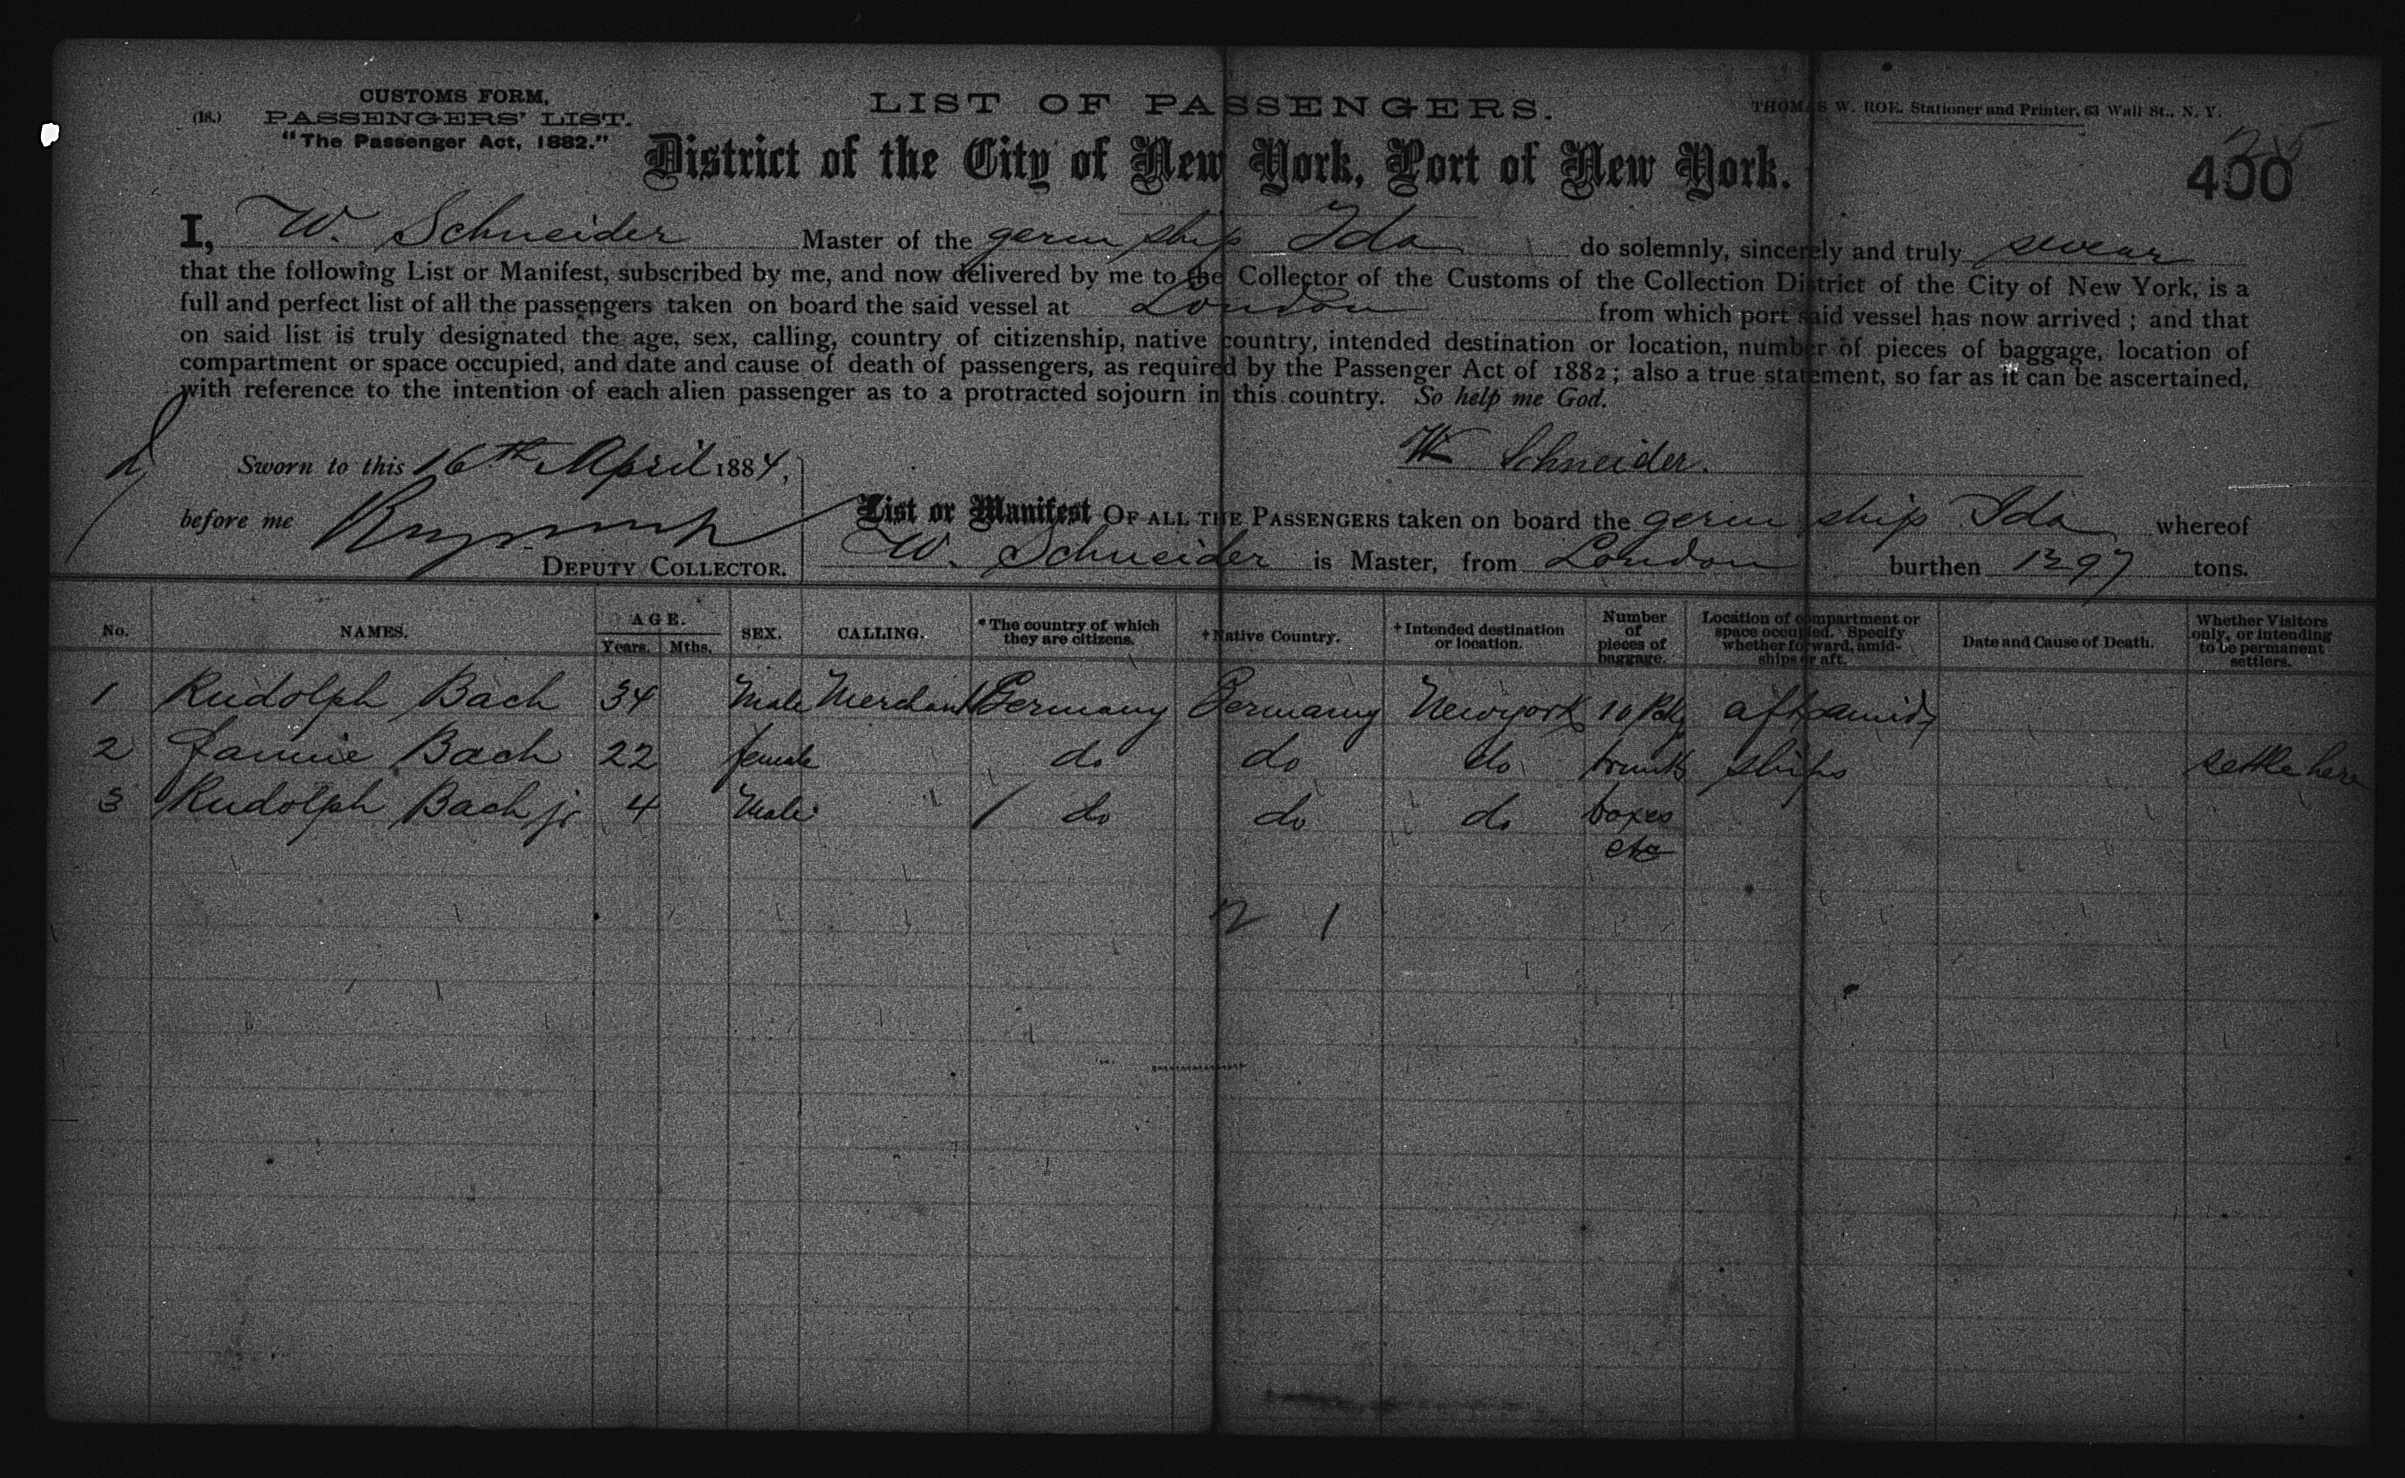 CUSTOMS FORM,
(18.) PASSENGERS' LIST.
"The Passenger Act, 1882."
LIST OF PASSENGERS.
THOMAS W. ROE, Stationer and Printer, 63 Wall St., N. Y.
District of the City of New York, Port of New York.
400
I, W. Schneider Master of the germ ship Ida do solemnly, sincerely and truly swear
that the following List or Manifest, subscribed by me, and now delivered by me to the Collector of the Customs of the Collection District of the City of New York, is a
full and perfect list of all the passengers taken on board the said vessel at London from which port said vessel has now arrived; and that
on said list is truly designated the age, sex, calling, country of citizenship, native country, intended destination or location, number of pieces of baggage, location of
compartment or space occupied, and date and cause of death of passengers, as required by the Passenger Act of 1882; also a true statement, so far as it can be ascertained,
with reference to the intention of each alien passenger as to a protracted sojourn in this country. So help me God.
Sworn to this 16th April 1884,
W Schneider.
before me
DEPUTY COLLECTOR.
List or Manifest OF ALL THE PASSENGERS taken on board the germ ship Ida whereof
W. Schneider is Master, from London burthen 1297 tons.
No. NAMES. AGE. Years. Mths. SEX. CALLING. *The country of which they are citizens. †Native Country. †Intended destination or location. Number of pieces of baggage. Location of compartment or space occupied. Specify whether forward, amidships or aft. Date and Cause of Death. Whether Visitors only, or intending to be permanent settlers.
1 Rudolph Bach 34 Male Merchant Germany Germany Newyork 10 aft
2 Fannie Bach 22 female do do do trunks ships settle here
3 Rudolph Bach jr 4 Male do do do boxes
etc
2 1